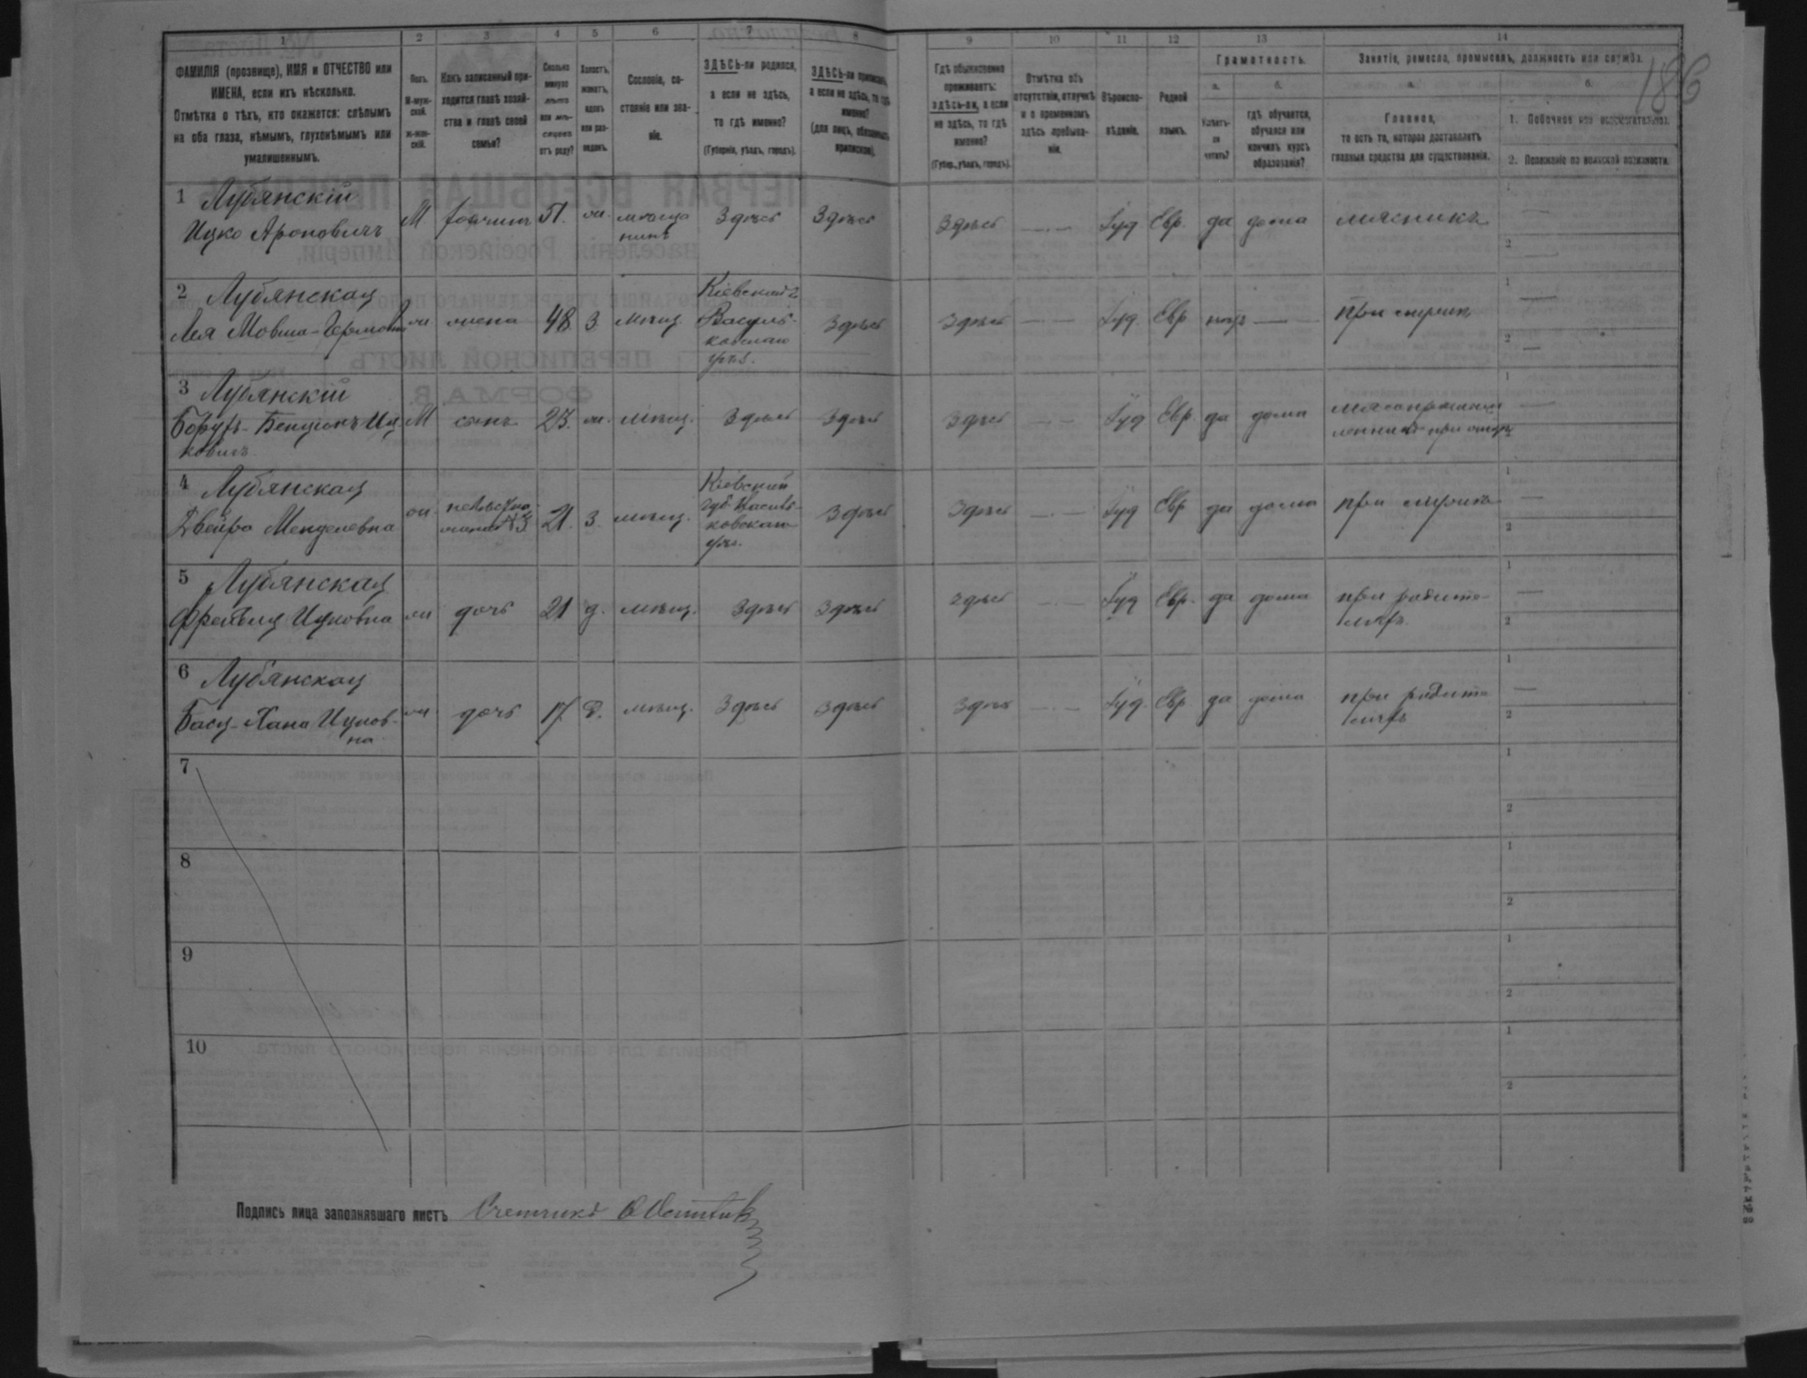 1
2
3
4
5
6
7
8
9
10
11
12
13
14
186
ФАМИЛІЯ (прозвище), ИМЯ и ОТЧЕСТВО или
ИМЕНА, если ихъ нѣсколько.
Отмѣтка о тѣхъ, кто окажется: слѣпымъ
на оба глаза, нѣмымъ, глухонѣмымъ или
умалишеннымъ.
Полъ.
М-муж-
ской.
ж-жен-
скій.
Какъ записанный при-
ходится главѣ хозяй-
ства и главѣ своей
семьи?
Сколько
минуло
лѣтъ
или мѣ-
сяцевъ
отъ роду?
Холостъ,
женатъ,
вдовъ
или раз-
веденъ.
Сословіе, со-
стояніе или зва-
ніе.
ЗДѢСЬ-ли родился,
а если не здѣсь,
то гдѣ именно?
(Губернія, уѣздъ, городъ).
ЗДѢСЬ-ли приписанъ,
а если не здѣсь, то гдѣ
именно?
(для лицъ, обязанныхъ
припискою).
Гдѣ обыкновенно
проживаетъ:
здѣсь-ли, а если
не здѣсь, то гдѣ
именно?
(Губер., уѣздъ, городъ).
Отмѣтка объ
отсутствіи, отлучкѣ
и о временномъ
здѣсь пребыва-
ніи.
Вѣроиспо-
вѣданіе.
Родной
языкъ.
Грамотность.
а.
б.
Умѣетъ-
ли
читать?
гдѣ обучается,
обучался или
кончилъ курсъ
образованія?
Занятіе, ремесло, промыселъ, должность или служба.
а.
б.
Главное,
то есть то, которое доставляетъ
главныя средства для существованія.
1. Побочное или вспомогательное.
2. Положеніе по воинской повинности.
1 Лубянскій
Ицко Ароновичъ
М
хозяинъ
51.
ж.
мѣща
нинъ
Здѣсь
Здѣсь
Здѣсь
Іуд.
Евр.
да
дома
мясникъ
1
2
2 Лубянская
Лея Мовша-
ж
жена
48
З.
мѣщ.
Кіевской г.
Василь-
ковскаго
уѣз.
Здѣсь
Здѣсь
Іуд.
Евр
при мужѣ
1
2
3 Лубянскій
Борухъ-Бенціонъ Иц
ковичъ
М
сынъ
23.
ж.
мѣщ.
Здѣсь
Здѣсь
Здѣсь
Іуд
Евр.
да
дома
при отцѣ
1
2
4 Лубянская
Двейра Менделевна
ж.
невѣстка
жена №3
21.
З.
мѣщ.
Кіевской
губ. Василь-
ковскаго
уѣз.
Здѣсь
Здѣсь
Іуд
Евр
да
дома
при мужѣ
1
2
5 Лубянская
Фрейда Ицковна
ж
дочь
21
д.
мѣщ.
Здѣсь
Здѣсь
Здѣсь
Іуд
Евр.
да
дома
при родите-
ляхъ.
1
2
6 Лубянская
Бася-Хана Ицков-
на
ж
дочь
17
д.
мѣщ.
Здѣсь
Здѣсь
Здѣсь
Іуд.
Евр
да
дома
при родите
ляхъ
1
2
7
1
2
8
1
2
9
1
2
10
1
2
Подпись лица заполнявшаго листъ Счетчикъ